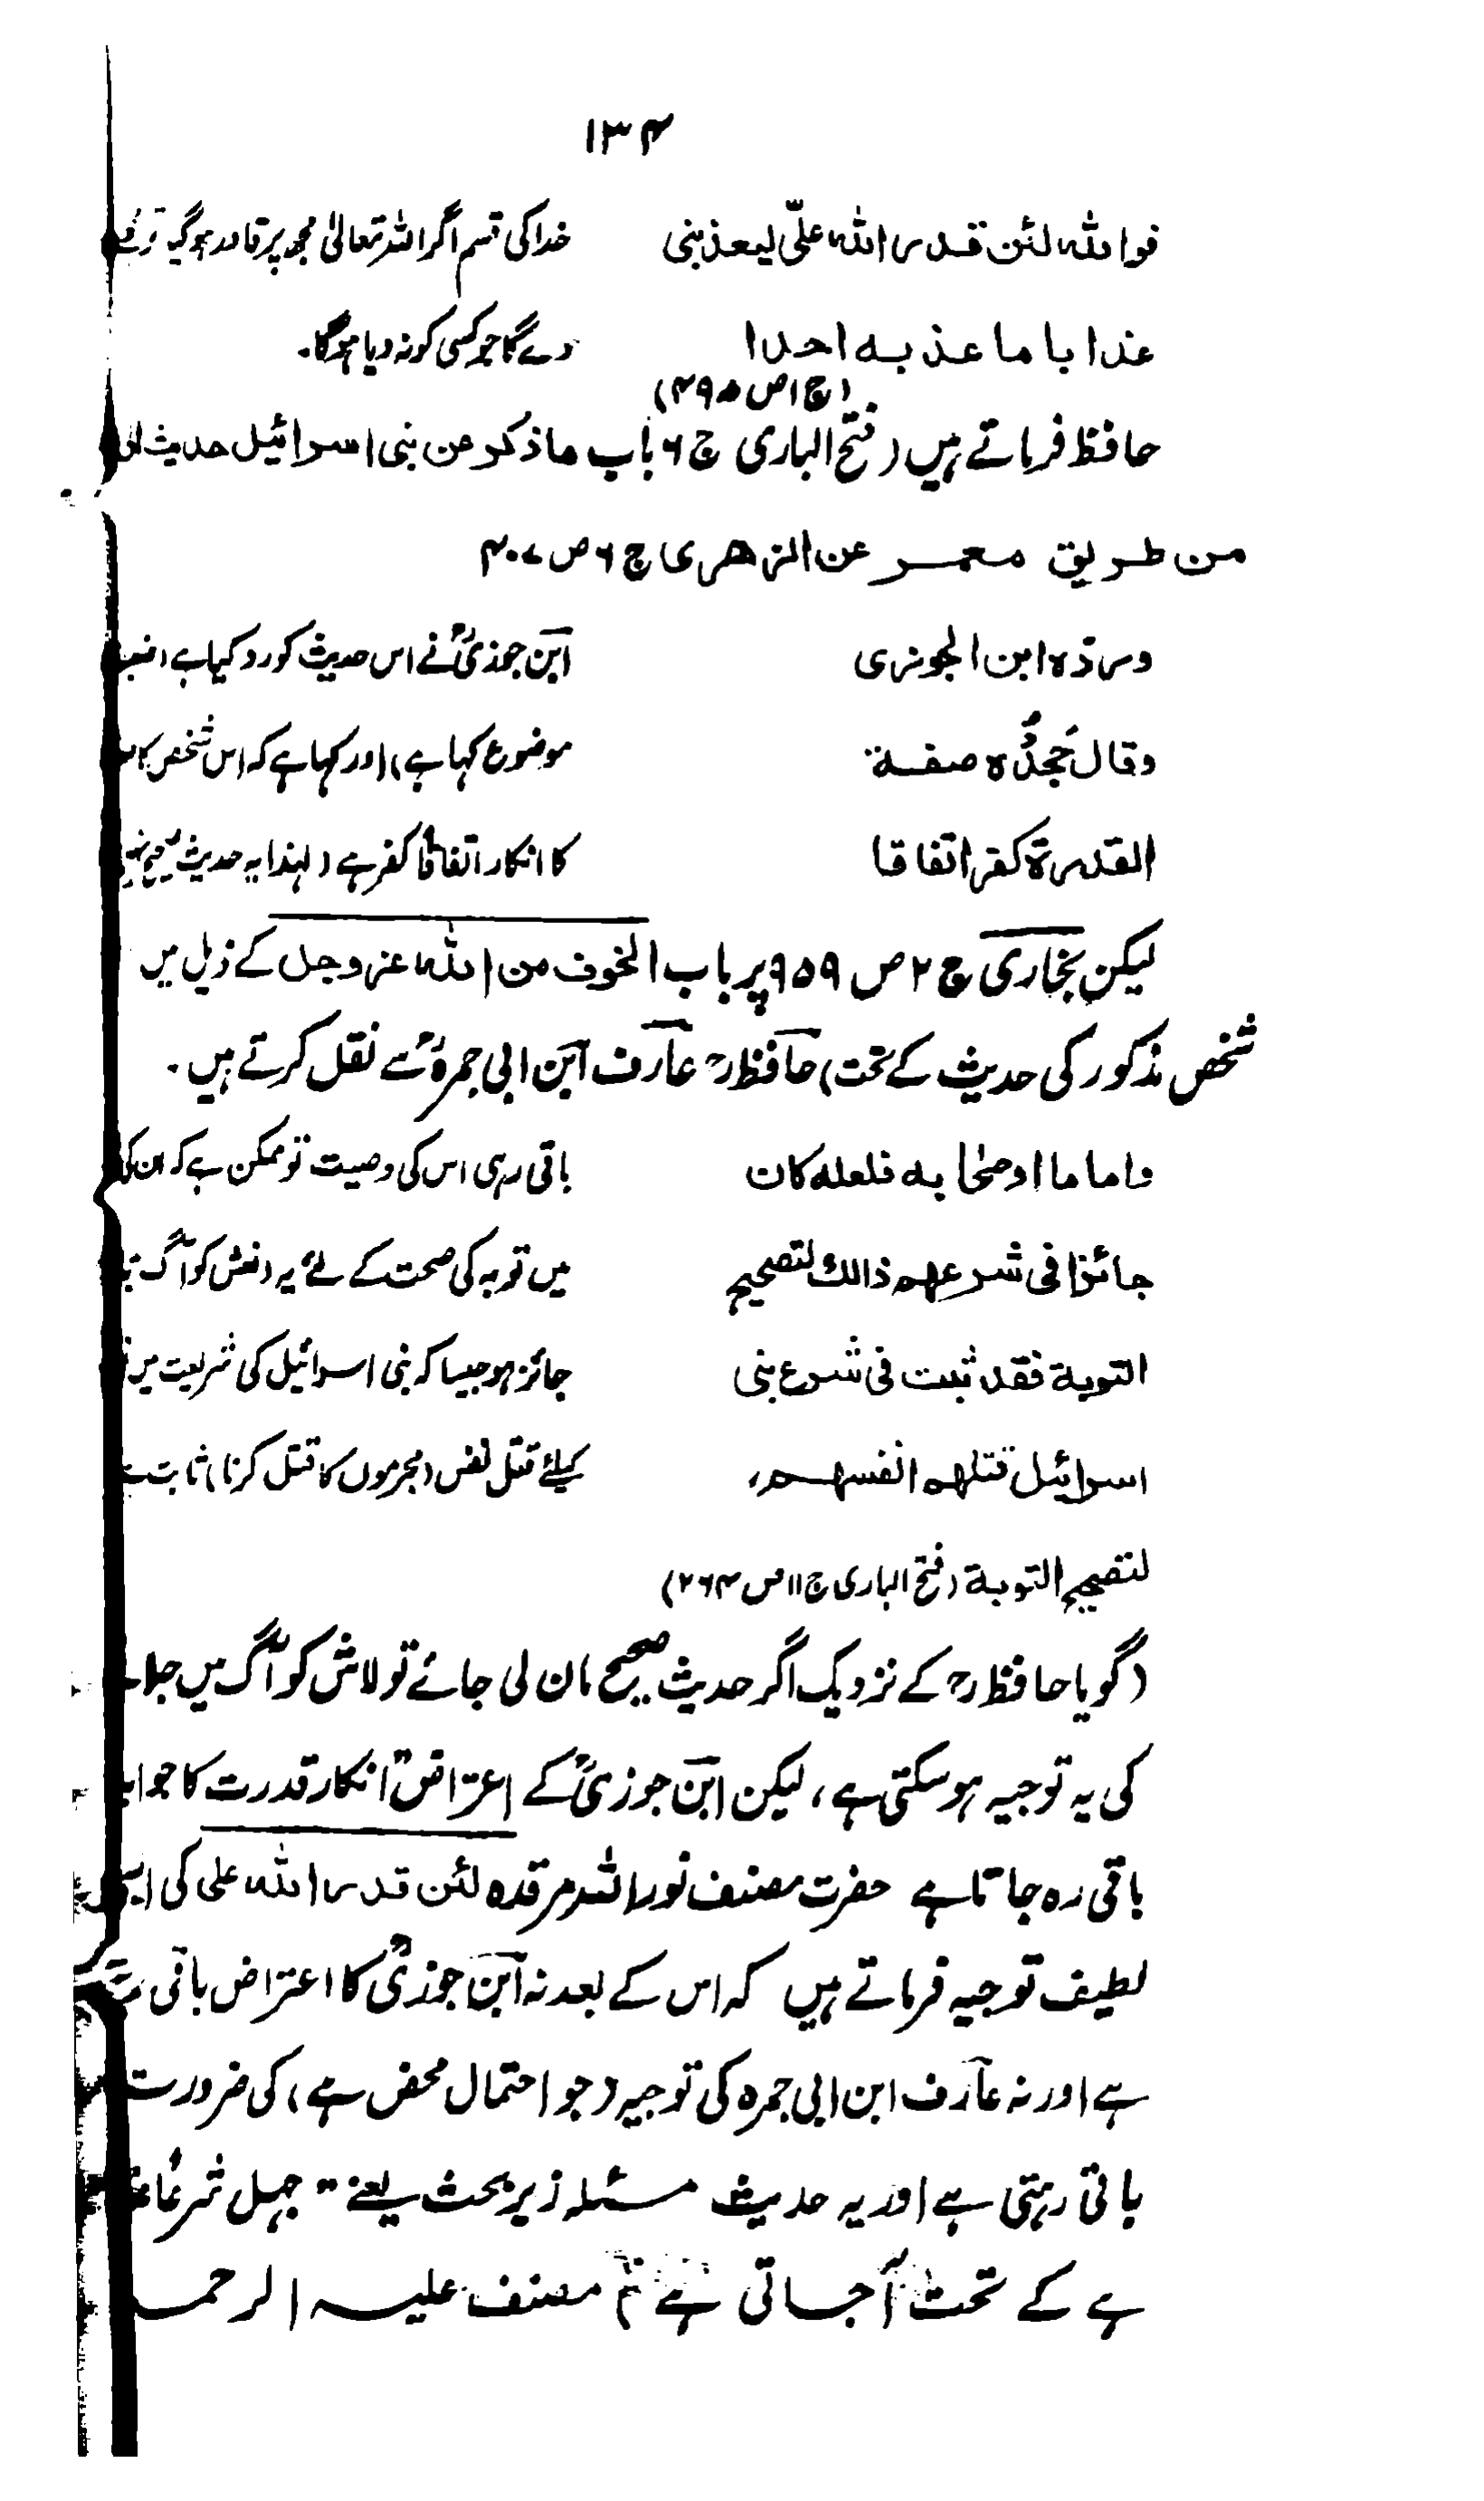 ۱۳۴
فواللہ لئن قدر اللہ علیّ لیعذبنی خدا کی قسم اگر اللہ تعالیٰ مجھ پر قادر ہوگیا تو
عذابا ما عذبہ احدا دے گا جو کسی کو نہ دیا ہوگا۔
(ج ۱ ص ۴۹۵)
حافظ فرماتے ہیں (فتح الباری ج ۶ باب ما ذکر عن بنی اسرائیل حدیث
من طریق معمر عن الزھری ج ۶ ص ۴۰۷
وردّہ ابن الجوزی ابن جوزیؒ نے اس حدیث کو رد کیا ہے
وقال جحدُہ صفۃ موضوع کہا ہے، اور کہا ہے کہ اس شخص کا
القدرۃ کفر اتفاقا کا انکار اتفاقاً کفر ہے (لہذا یہ حدیث صحیح نہیں
لیکن بخاری ج ۲ ص ۹۵۹ پر باب الخوف من اللہ عز و جل کے ذیل میں
شخص مذکور کی حدیث کے تحت، حافظؒ عارف ابن ابی جمرہؒ سے نقل کرتے ہیں۔
واما ما اوصیٰ بہ فلعلہ کان باقی رہی اس کی وصیت تو ممکن ہے کہ ان کی
جائزا فی شرعھم ذالک لتصحیح میں توبہ کی صحت کے لئے یہ (نعش کو آگ
التوبۃ فقد ثبت فی شرع بنی جائز ہو جیسا کہ بنی اسرائیل کی شریعت میں
اسرائیل قتلھم انفسھم، کیلئے قتل نفس (مجرموں کا قتل کرنا) ثابت
لتصحیح التوبۃ (فتح الباری ج ۱۱ ص ۲۶۴)
(گویا حافظؒ کے نزدیک اگر حدیث صحیح مان لی جائے تو لاش کو آگ میں
کی یہ توجیہ ہوسکتی ہے، لیکن ابن جوزیؒ کے اعتراض "انکار قدرت کا
باقی رہ جاتا ہے حضرت مصنف نور اللہ مرقدہ لئن قدر اللہ علی کی
لطیف توجیہ فرماتے ہیں کہ اس کے بعد نہ ابن جوزیؒ کا اعتراض باقی
ہے اور نہ عارف ابن ابی جمرہ کی توجیہ (جو احتمال محض ہے، کی ضرورت
باقی رہتی ہے اور یہ حدیث مسئلہ زیر بحث یعنے "جہل شرعاً
ہے کے تحت آجاتی ہے مصنف علیہ